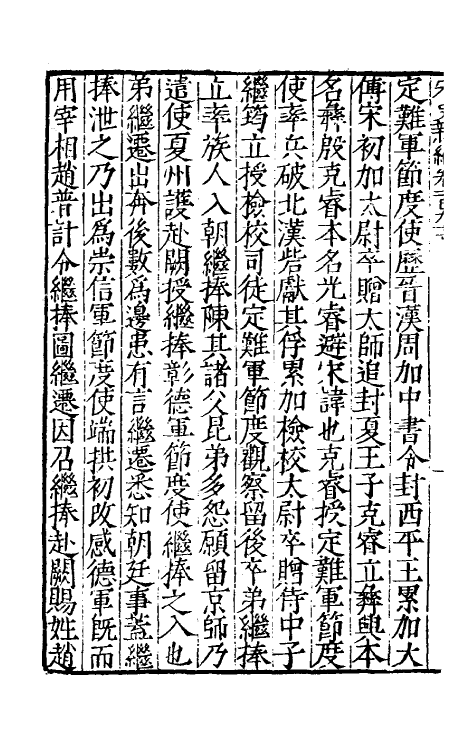 定難軍節度使歷晉漢周加中書令封西平王累加大
傅宋初加太尉卒贈太師追封夏王子克睿立彝興本
名彝殷克睿本名光睿避宋諱也克睿授定難軍節度
使率兵破北漢砦獻其俘累加檢校太尉卒贈侍中子
繼筠立授檢校司徒定難軍節度觀察留後卒弟繼捧
立率族人入朝繼捧陳其諸父昆弟多怨願留京師乃
遣使夏州護赴闕授繼捧彰德軍節度使繼捧之入也
弟繼遷出奔後數爲邊患有言繼遷悉知朝廷事蓋繼
捧泄之乃出爲崇信軍節度使端拱初改感德軍旣而
用宰相趙普計令繼捧圖繼遷因召繼捧赴闕賜姓趙